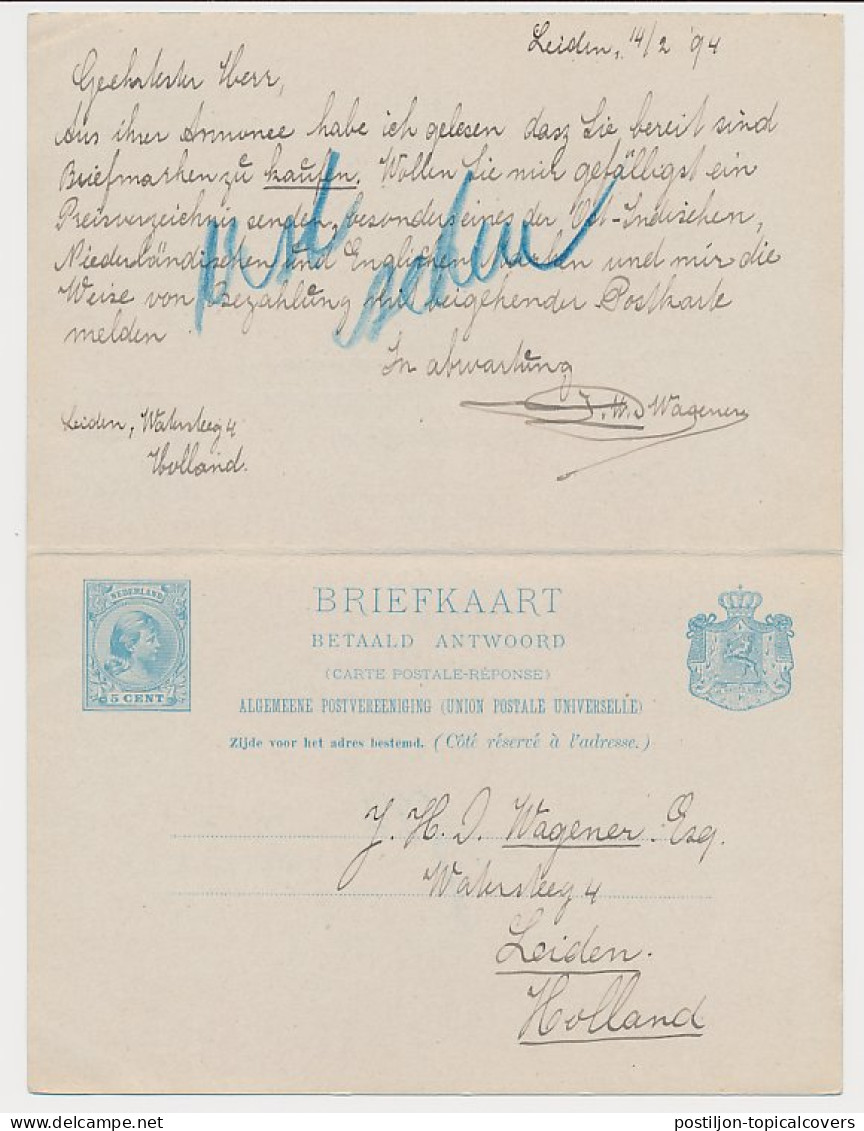 Leiden, 14/2 '94
Geehrtester Herr,
Aus ihrer Annonce habe ich gelesen dasz Sie bereit sind
Briefmarken zu kaufen. Wollen Sie mir gefälligst ein
Preisverzeichnis senden, besonders eines der Ost-Indischen,
Niederländischen und Englischen Marken und mir die
Weise von Bezahlung mit beigehender Postkarte
melden
In abwartung
J. H. D. Wagener
Leiden, Watersteeg 4
Holland.
NEDERLAND
5 CENT
BRIEFKAART
BETAALD ANTWOORD
(CARTE POSTALE-RÉPONSE)
ALGEMEENE POSTVEREENIGING (UNION POSTALE UNIVERSELLE)
Zijde voor het adres bestemd. (Côté réservé à l'adresse.)
J. H. D. Wagener. Esq.
Watersteeg 4
Leiden.
Holland
postiljon-topicalcovers